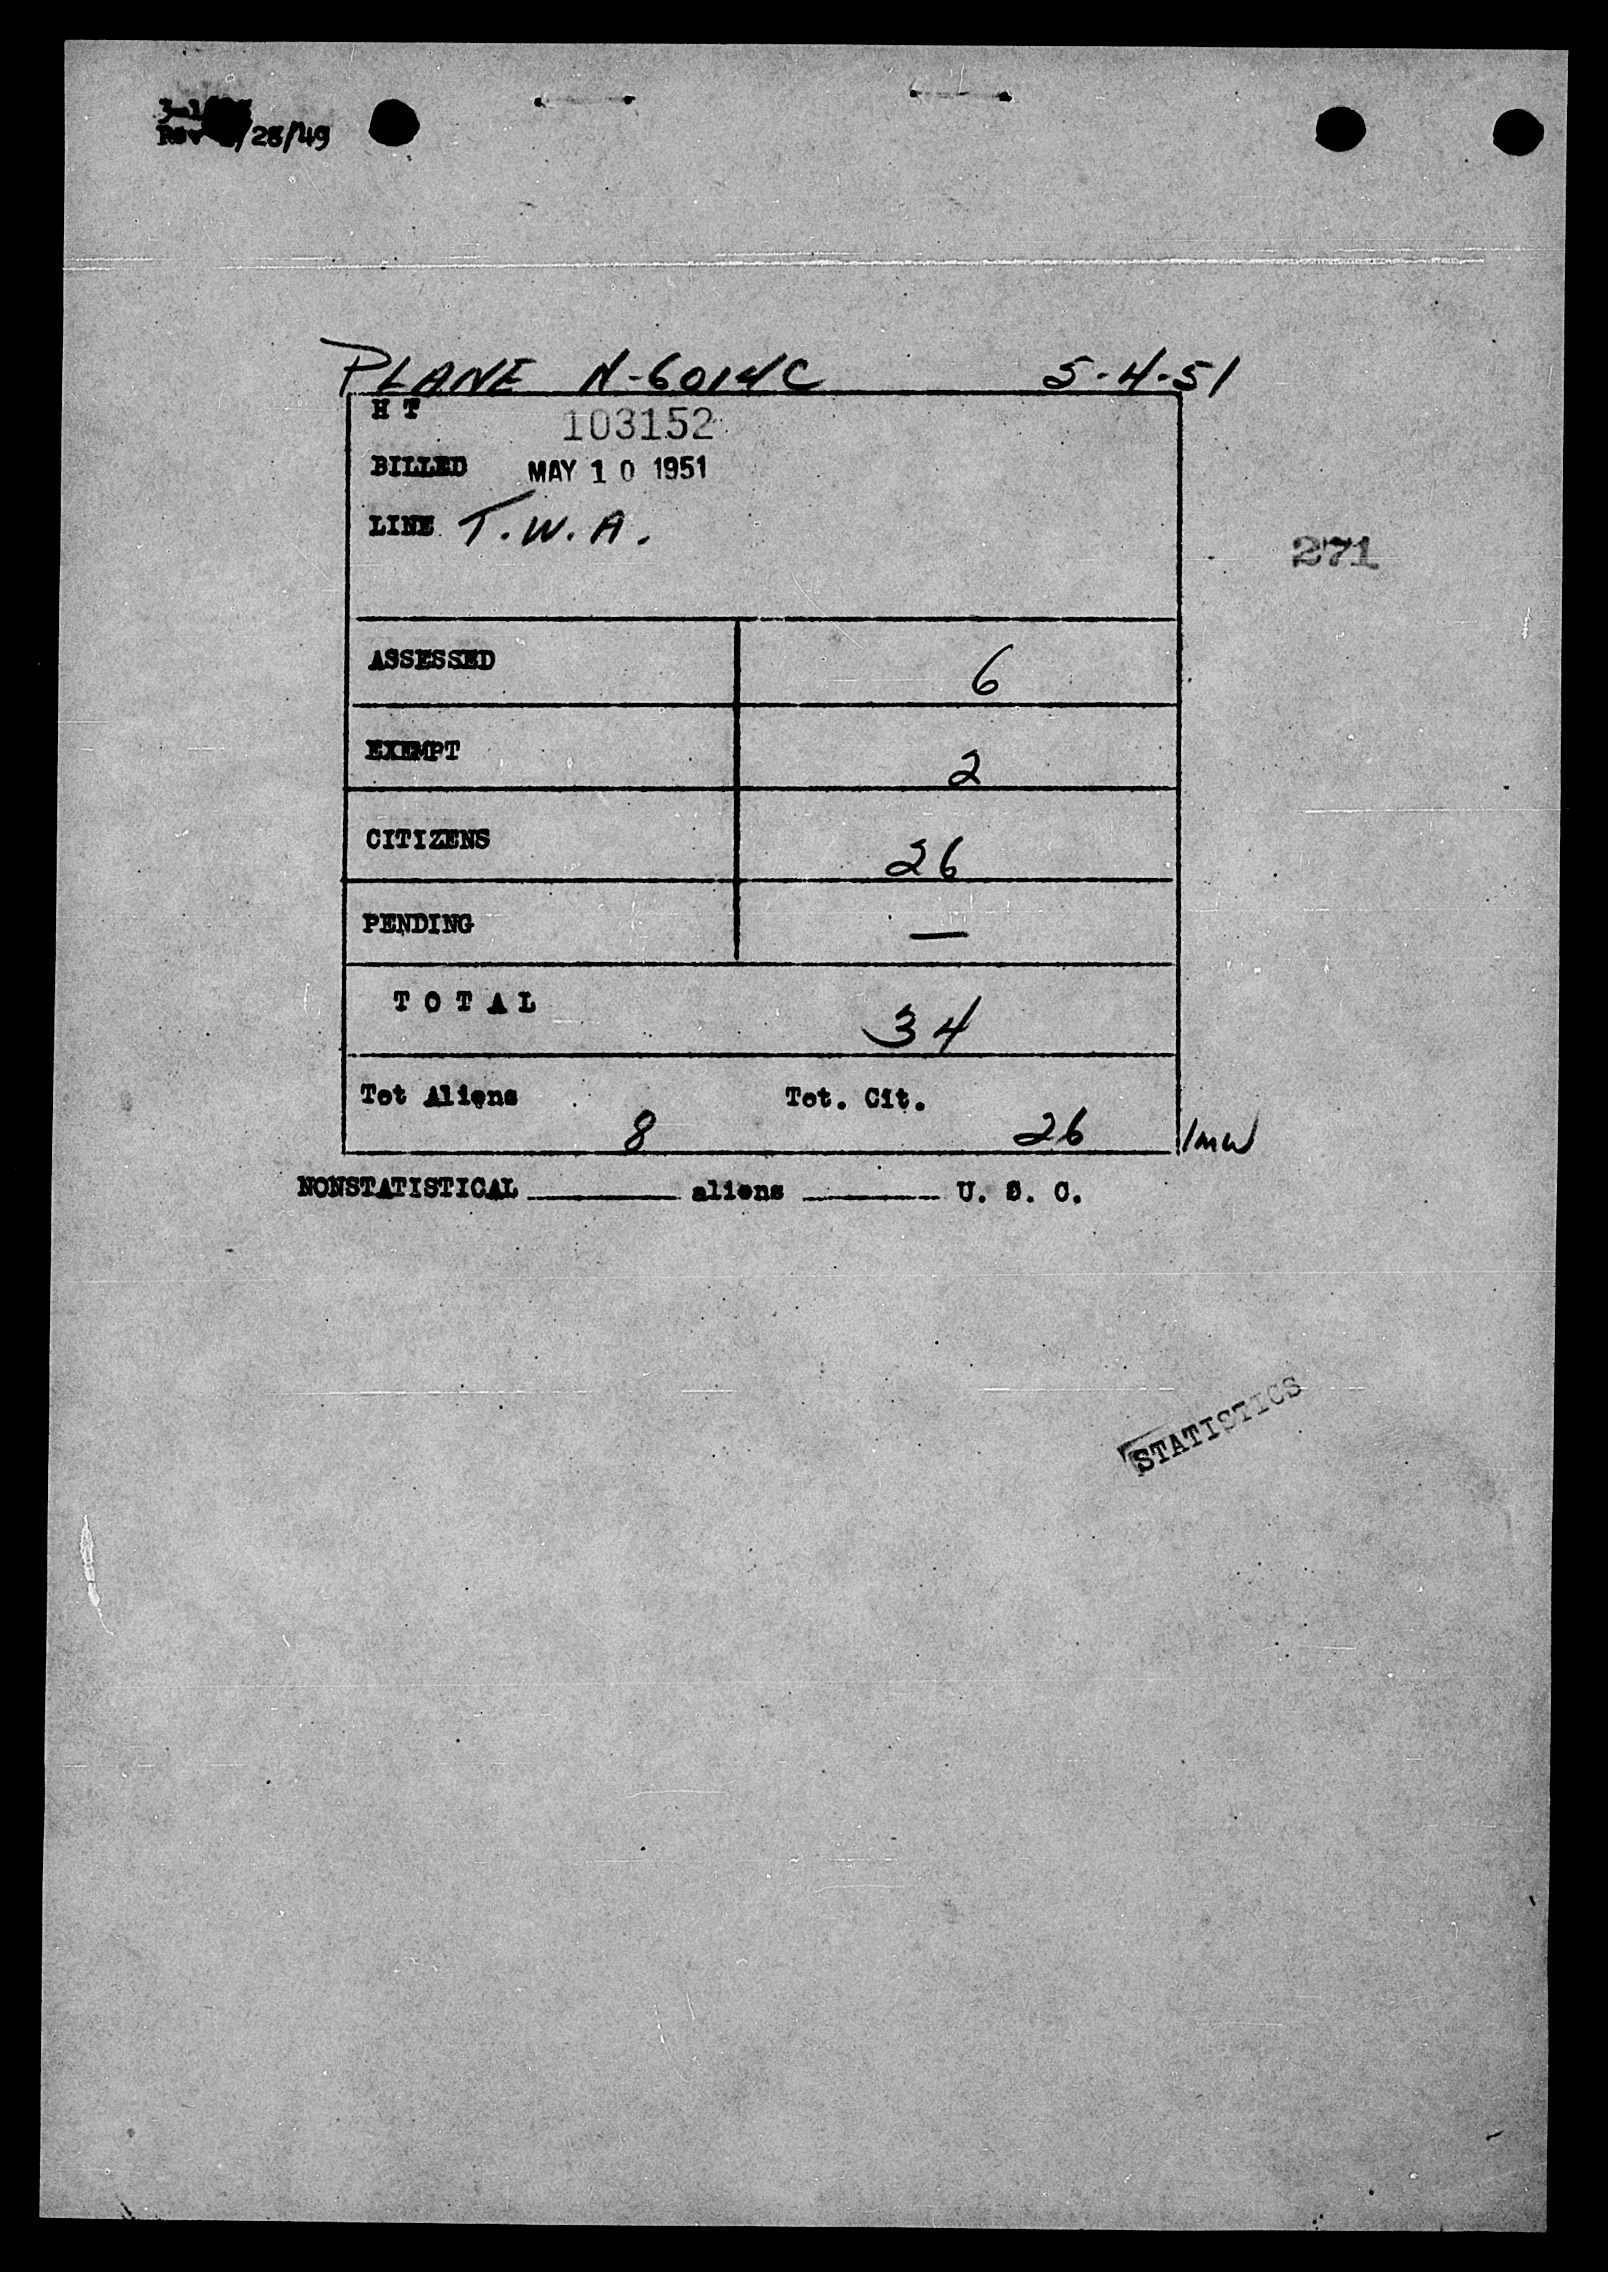 3-1
Rev /28/49
PLANE N-6014C 5-4-51
H T 103152
BILLED MAY 10 1951
LINE T.W.A.
271
ASSESSED 6
EXEMPT 2
CITIZENS 26
PENDING —
T O T A L 34
Tot Aliens Tot. Cit.
8 26 /mw
NONSTATISTICAL ________ aliens ________ U. S. C.
STATISTICS